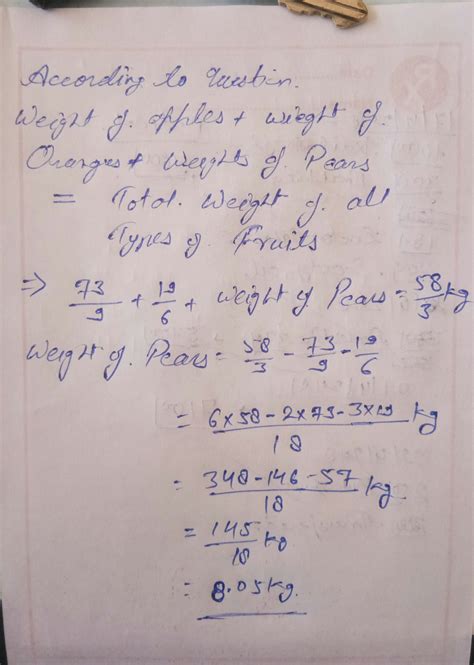 According to Question.
Weight of apples + wieght of
Oranges + Weights of Pears
= Total. Weight of all
Types of Fruits
⇒ 73/9 + 19/6 + weight of Pears = 58/3 kg
Weight of Pears = 58/3 - 73/9 - 19/6
= 6×58-2×73-3×19/18 kg
= 348-146-57/18 kg.
= 145/18 kg
= 8.05kg.